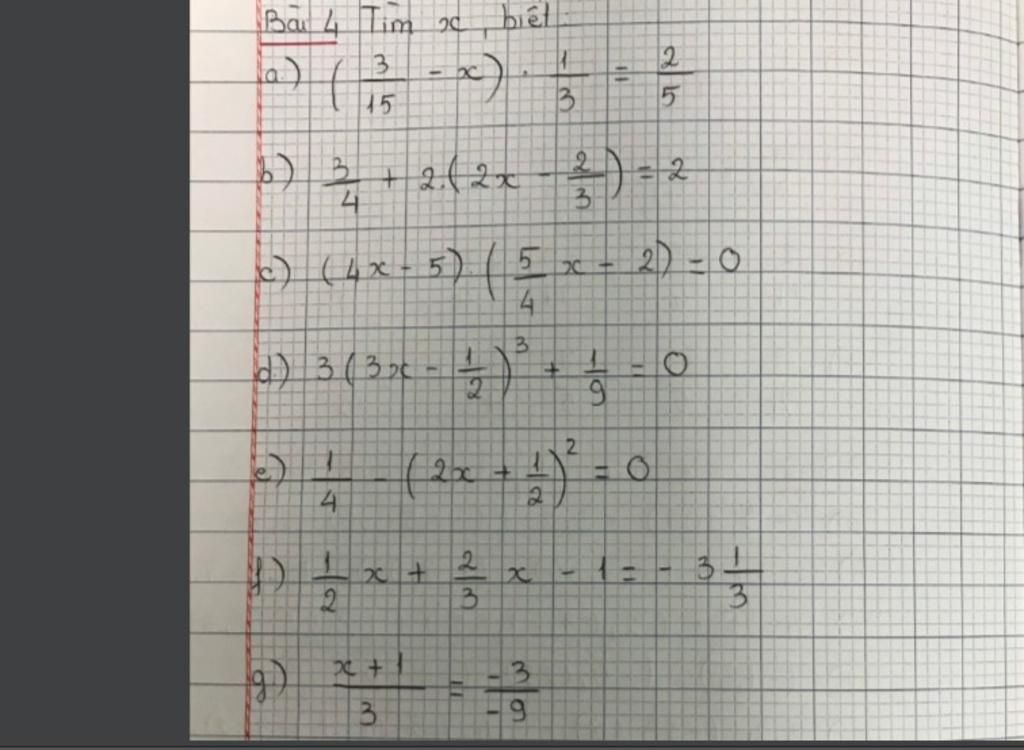 Bài 4 Tìm x, biết:
a) (3/15 - x) . 1/3 = 2/5
b) 3/4 + 2.(2x - 2/3) = 2
c) (4x - 5).(5/4 x - 2) = 0
d) 3(3x - 1/2)³ + 1/9 = 0
e) 1/4 - (2x + 1/2)² = 0
f) 1/2 x + 2/3 x - 1 = - 3 1/3
g) x + 1/3 = -3/-9